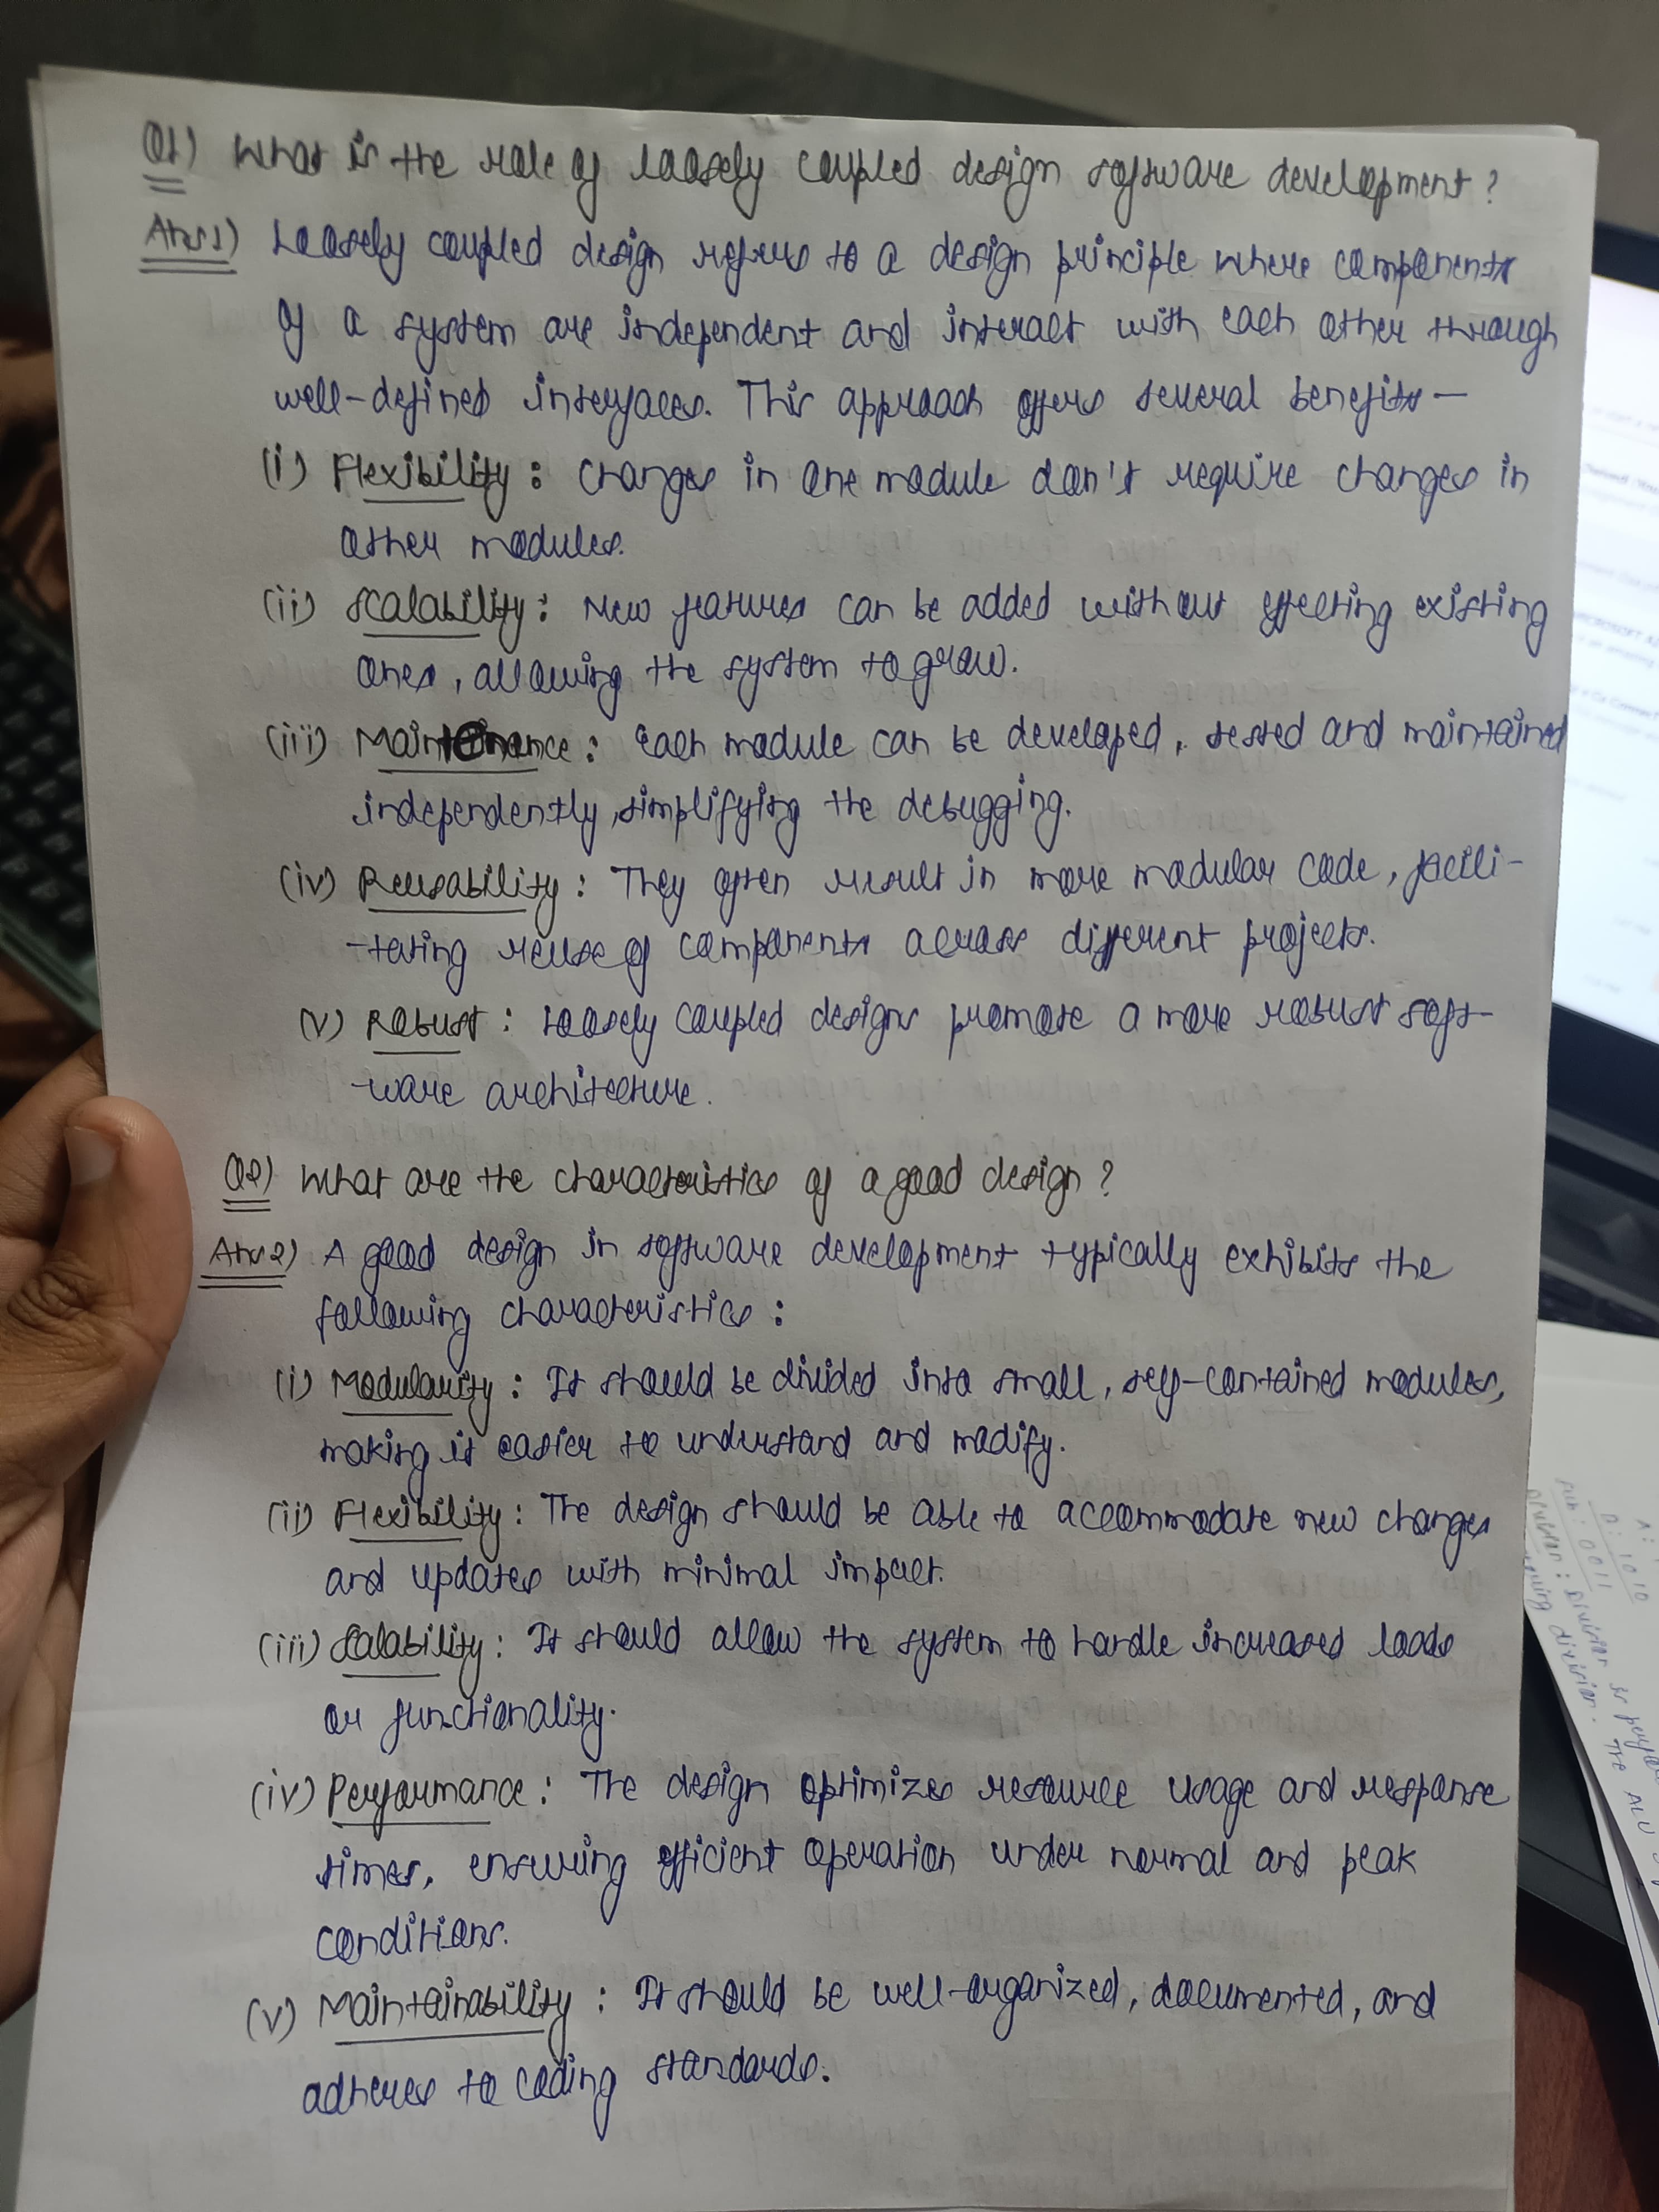 Q1) What is the role of loosely coupled design software development?
Ans1) Loosely coupled design refers to a design principle where components
of a system are independent and interact with each other through
well-defined interfaces. This approach offers several benefits -
(i) Flexibility : Changes in one module don't require changes in
other modules.
(ii) Scalability : New features can be added without effecting existing
ones, allowing the system to grow.
(iii) Maintenance : Each module can be developed, tested and maintained
independently, simplifying the debugging.
(iv) Reusability : They often result in more modular code, facili-
-tating reuse of components across different projects.
(v) Robust : Loosely coupled designs promote a more robust soft-
-ware architecture.
Q2) What are the characteristics of a good design?
Ans2) A good design in software development typically exhibits the
following characteristics :
(i) Modularity : It should be divided into small, self-contained modules,
making it easier to understand and modify.
(ii) Flexibility : The design should be able to accommodate new changes
and updates with minimal impact.
(iii) Scalability : It should allow the system to handle increased loads
or functionality.
(iv) Performance : The design optimizes resource usage and response
times, ensuring efficient operation under normal and peak
conditions.
(v) Maintainability : It should be well-organized, documented, and
adheres to coding standards.
A:
B: 1010
0011
Division : Division is
division. The ALU